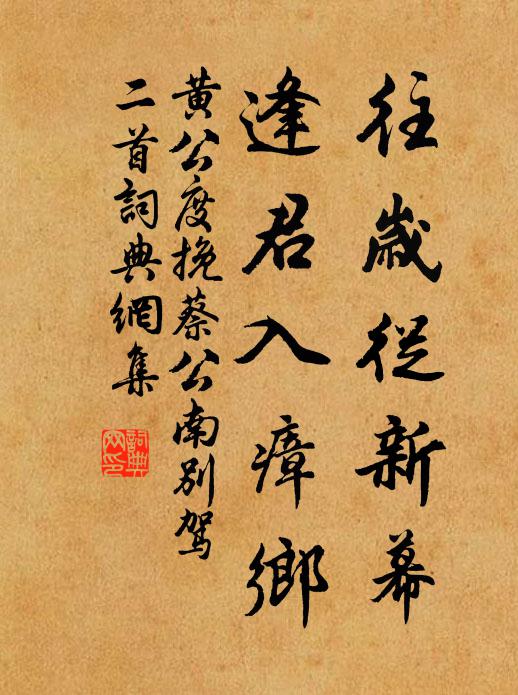 往歲從新幕
逢君入瘴鄉
黃公度挽蔡公南別駕
二首詞典網集
詞典
网印